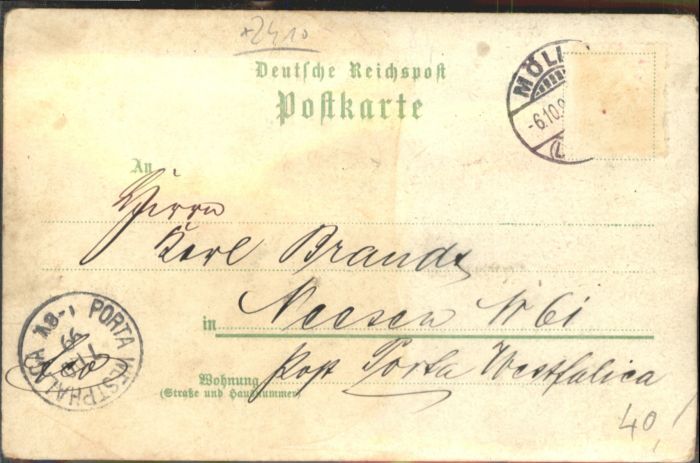 +2410
Deutsche Reichspost
Postkarte
MÖLL
-6.10.9
(L
An
Herrn
Karl Brands
in Neesen
post Porta Westfalica
Wohnung
(Straße und Hausnummer)
PORTA WESTPHALICA
7 10
99
1-8V
40